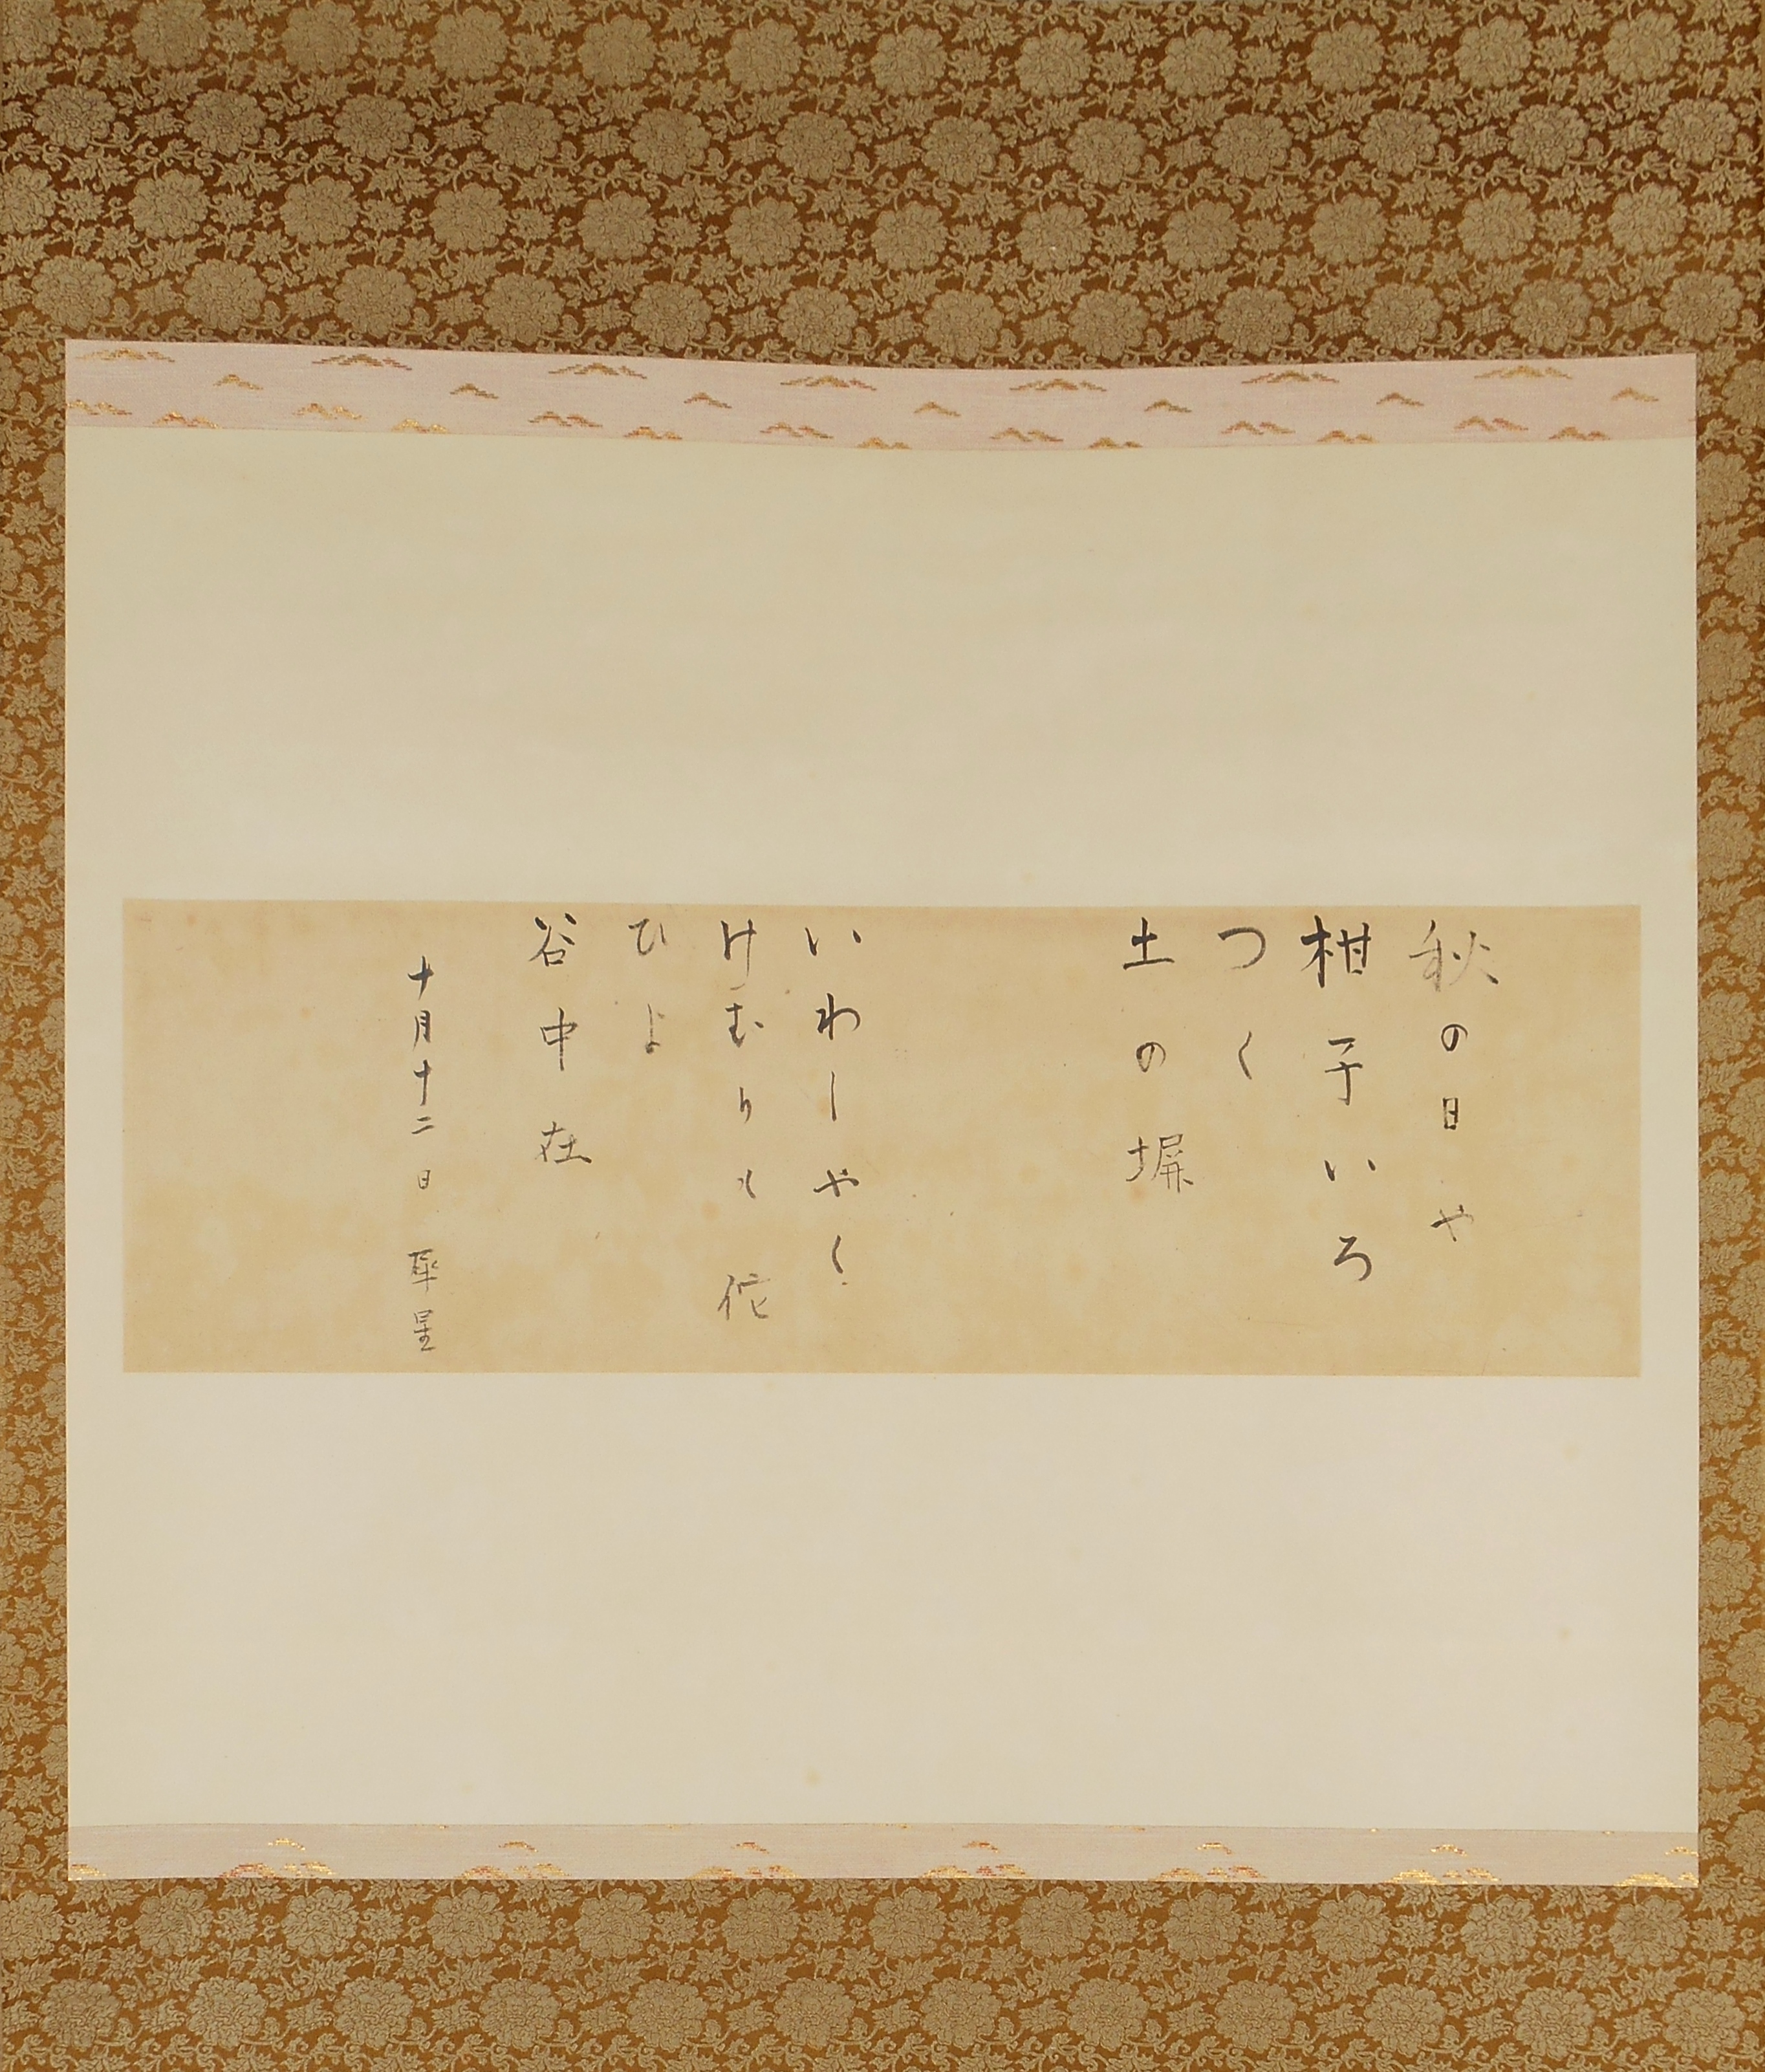 秋の日や
柑子いろ
つく
土の塀
いわしやく
けむりも佗
ひよ
谷中在
十月十二日 犀星